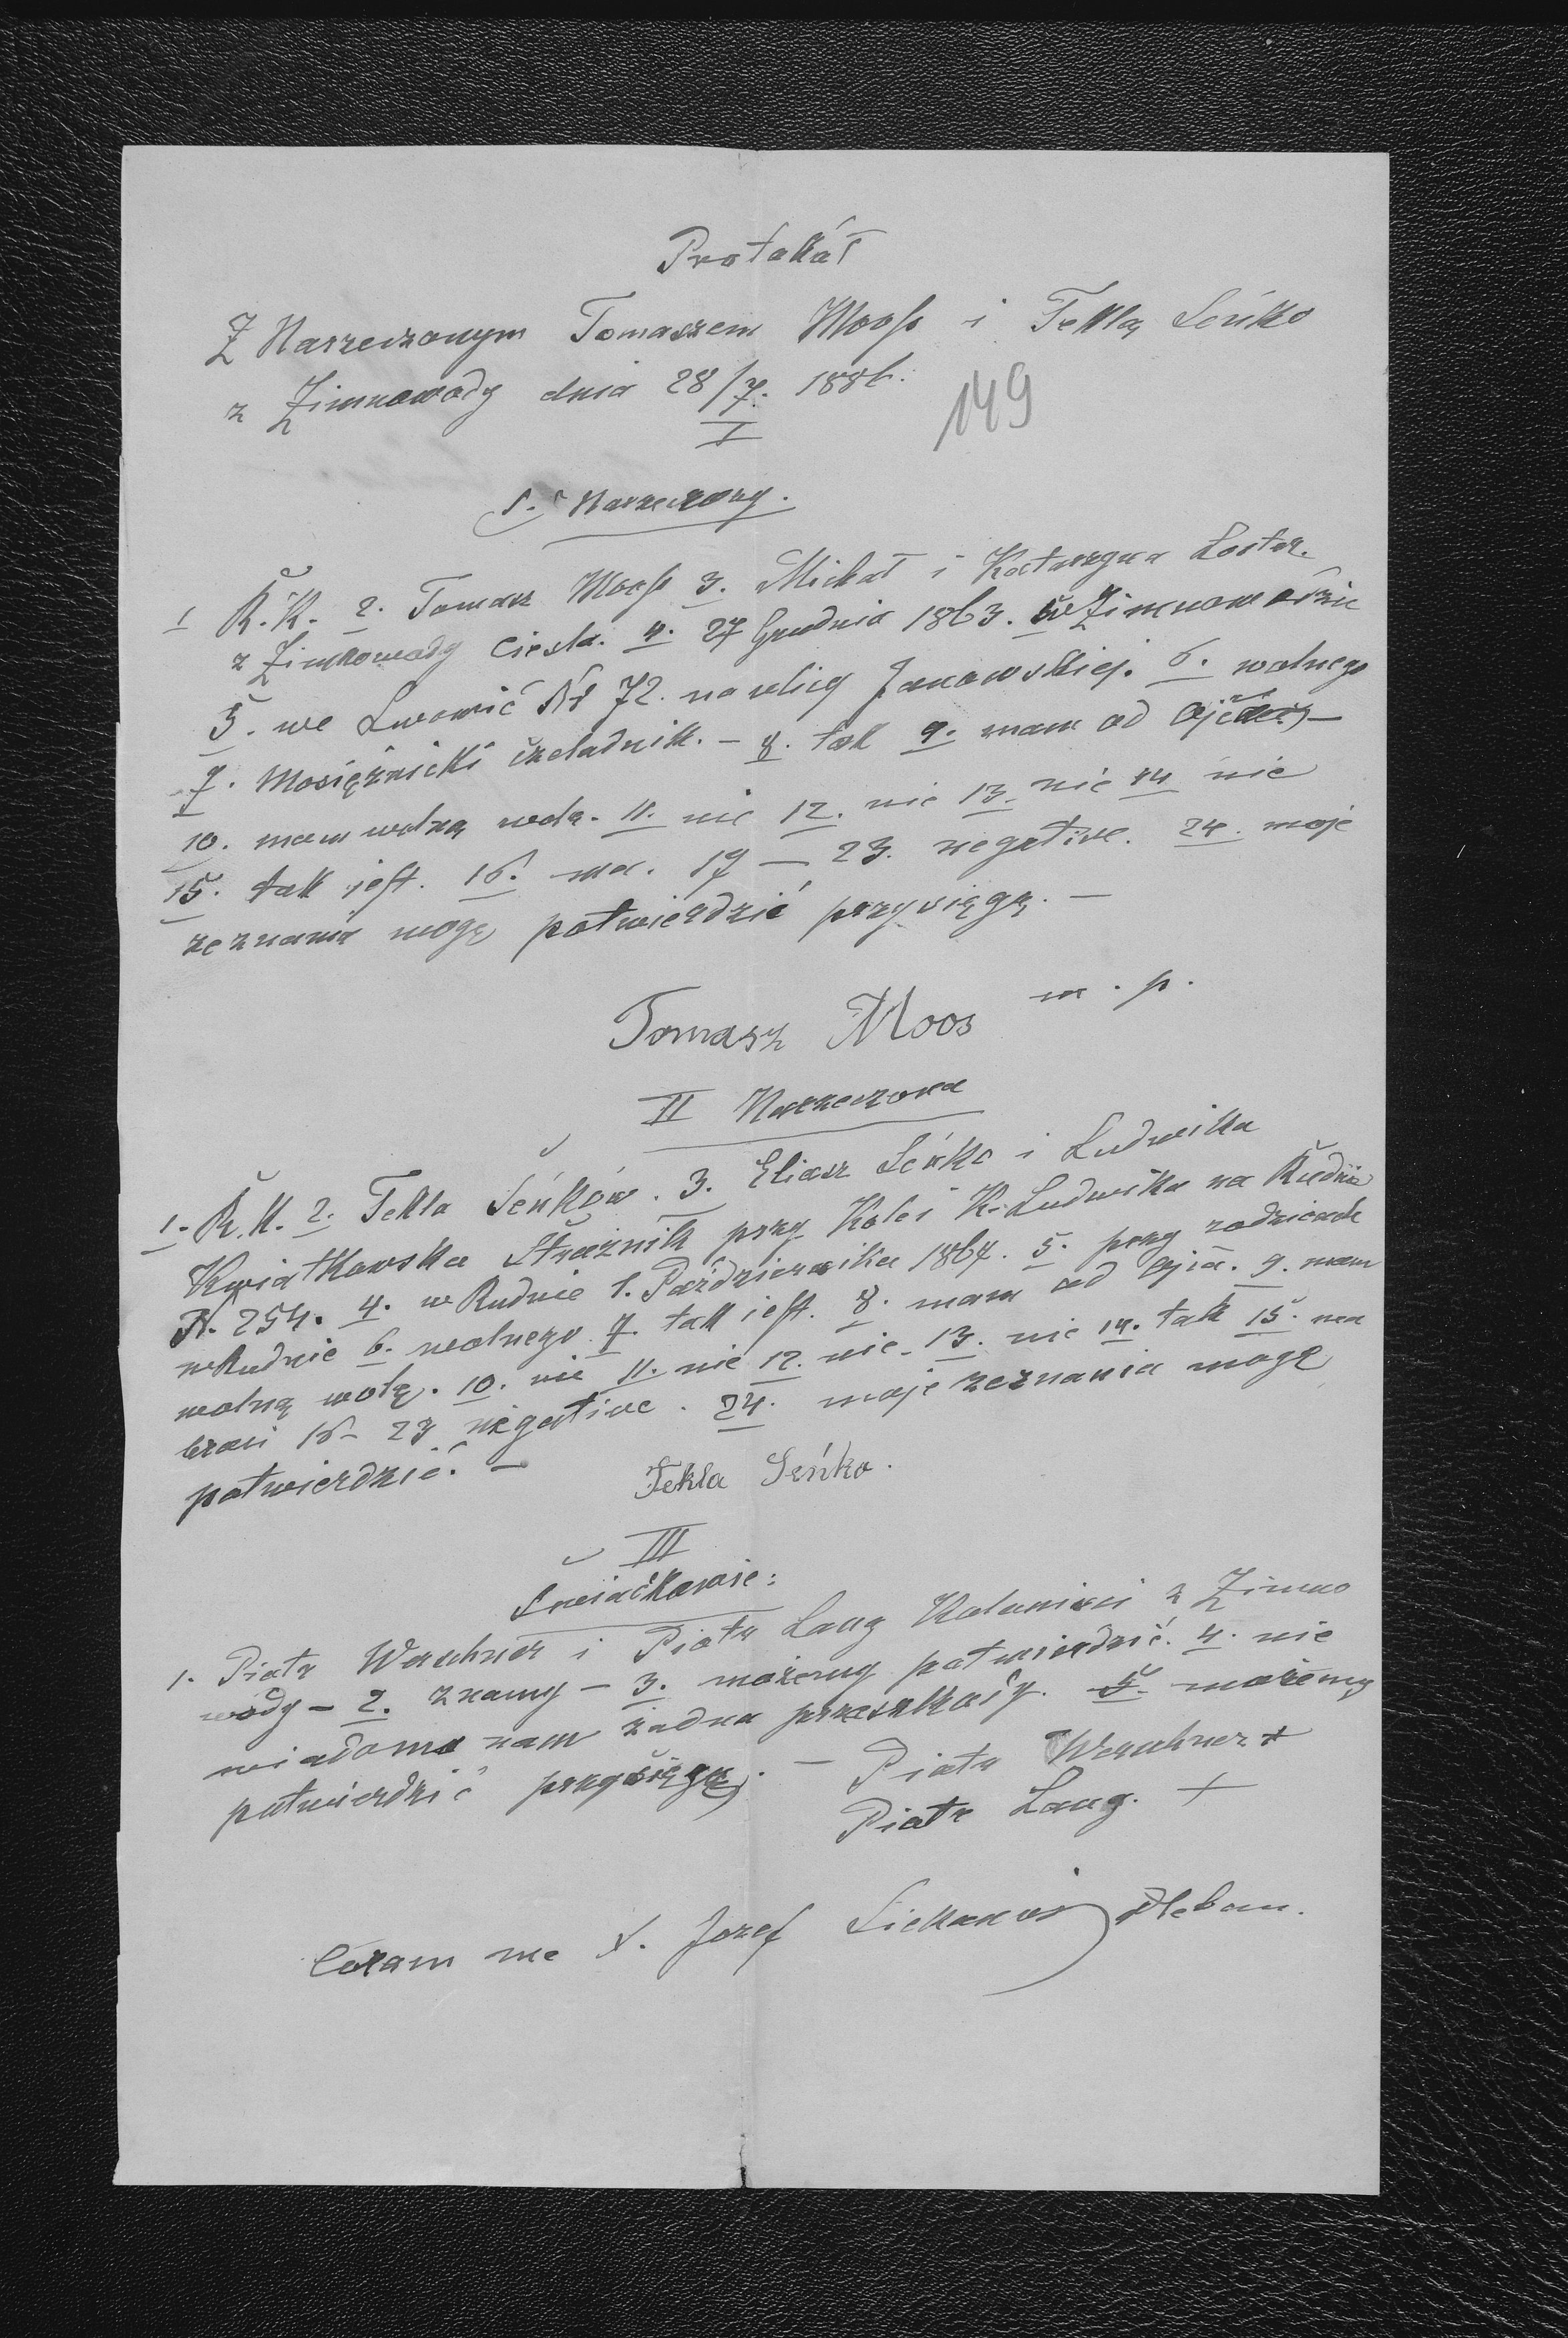 Protokół
Z Narzeczonym Tomaszem Mooss i Teklą Seńko
z Zimnowody dnia 28/7. 1886.
149
I
S. Narzeczony.
1 R.K. 2. Tomasz Mooss 3. Michał i Katarzyna
z Zimnowody Cieśla. 4. 27 Grudnia 1863. w Zimnowodzie
5. we Lwowie Nr 72. na ulicy Janowskiej. 6. wolnego
7. Mosiężnicki czeladnik. – 8. tak 9. mam od Ojca –
10. mam wolną wolę. 11. nie 12. nie 13. nie 14 nie
15. tak jest. 16. ma. 17 – 23. negative. 24. moje
zeznania mogę potwierdzić przysięgą. –
Tomasz Moos m. p.
II Narzeczona
1. R.K. 2. Tekla Seńków. 3. Eliasz Seńko i Ludwika
Kwiatkowska Strażnik przy Kolei K. Ludwika na Rudnie
N. 254. 4. w Rudnie 1. Października 1864. 5. przy rodzicach
w Rudnie 6. wolnego 7. tak jest. 8. mam od Ojca. 9. mam
wolną wolę. 10. nie 11. nie 12. nie. 13. nie 14. tak 15. ma
16 – 23 negative. 24. moje zeznania mogę
potwierdzić. –
Tekla Seńko.
III
Świadkowie:
1. Piotr Werschner i Piotr Lang Koloniści z Zimno
wody – 2. znamy – 3. możemy potwierdzić. 4. nie
wiadoma nam żadna przeszkody. 5. możemy
potwierdzić przysięgą. – Piotr Werschner +
Piotr Lang. +
Coram me X. Jozef Pleban.